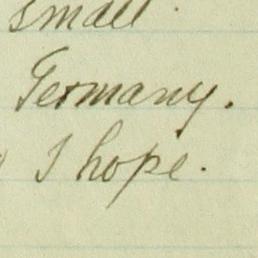 small.
Germany.
I hope.